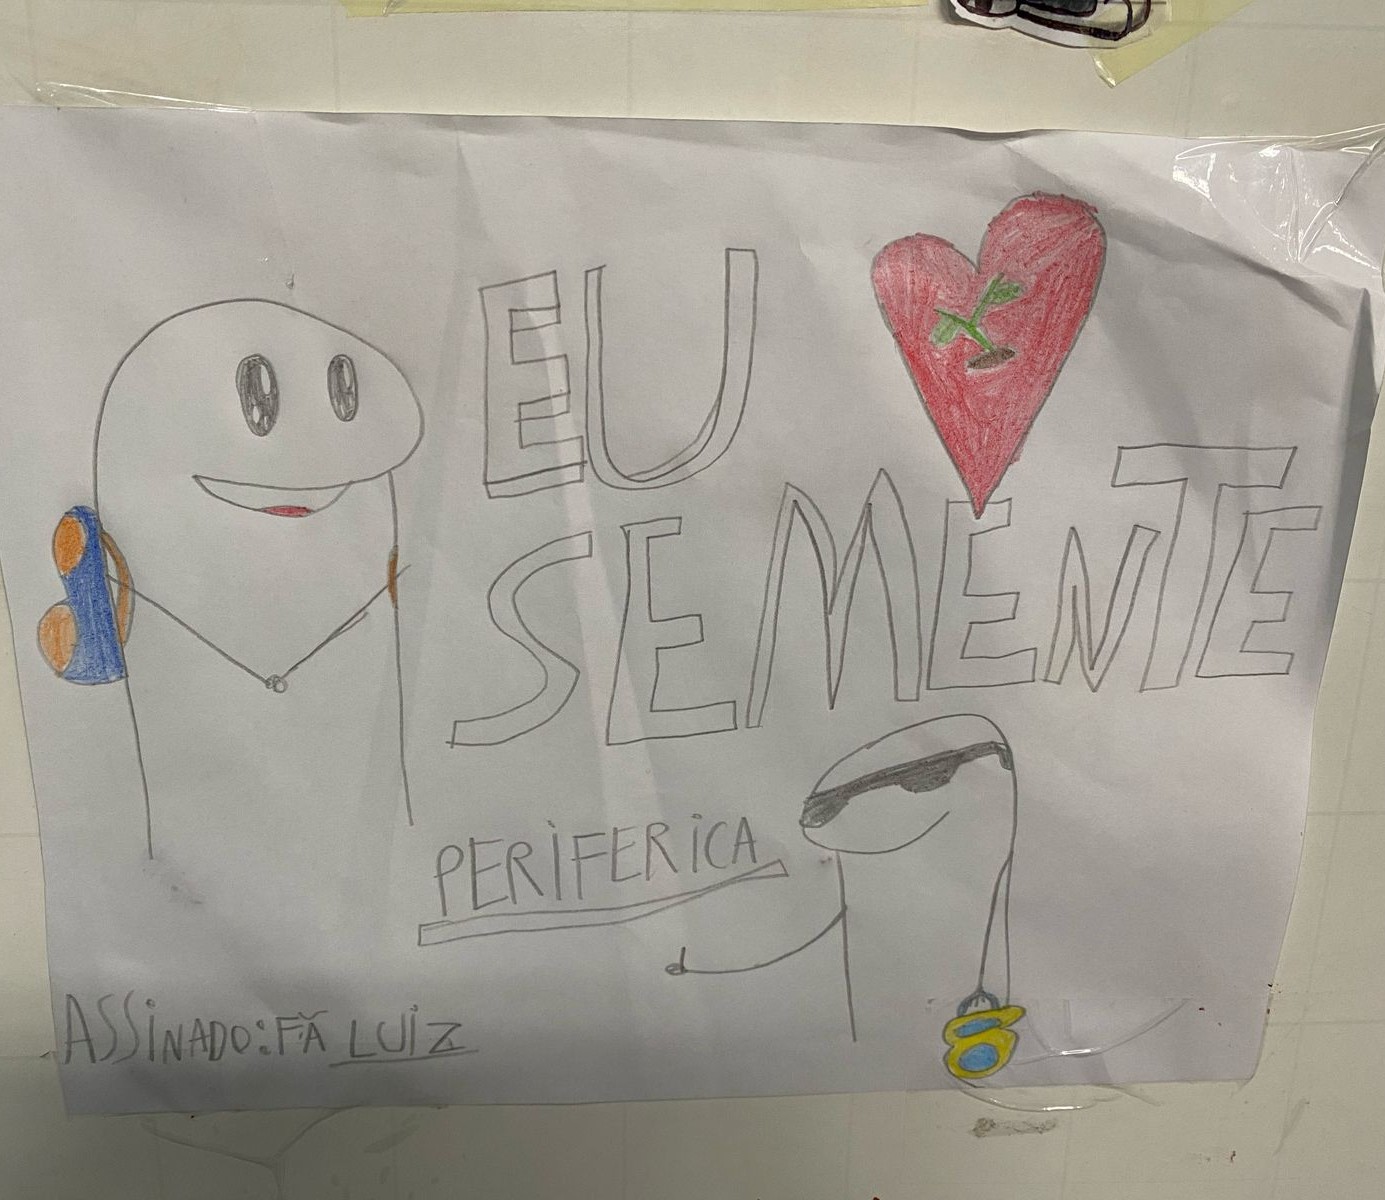 EU
SEMENTE
PERIFERICA
ASSINADO: FÃ LUIZ